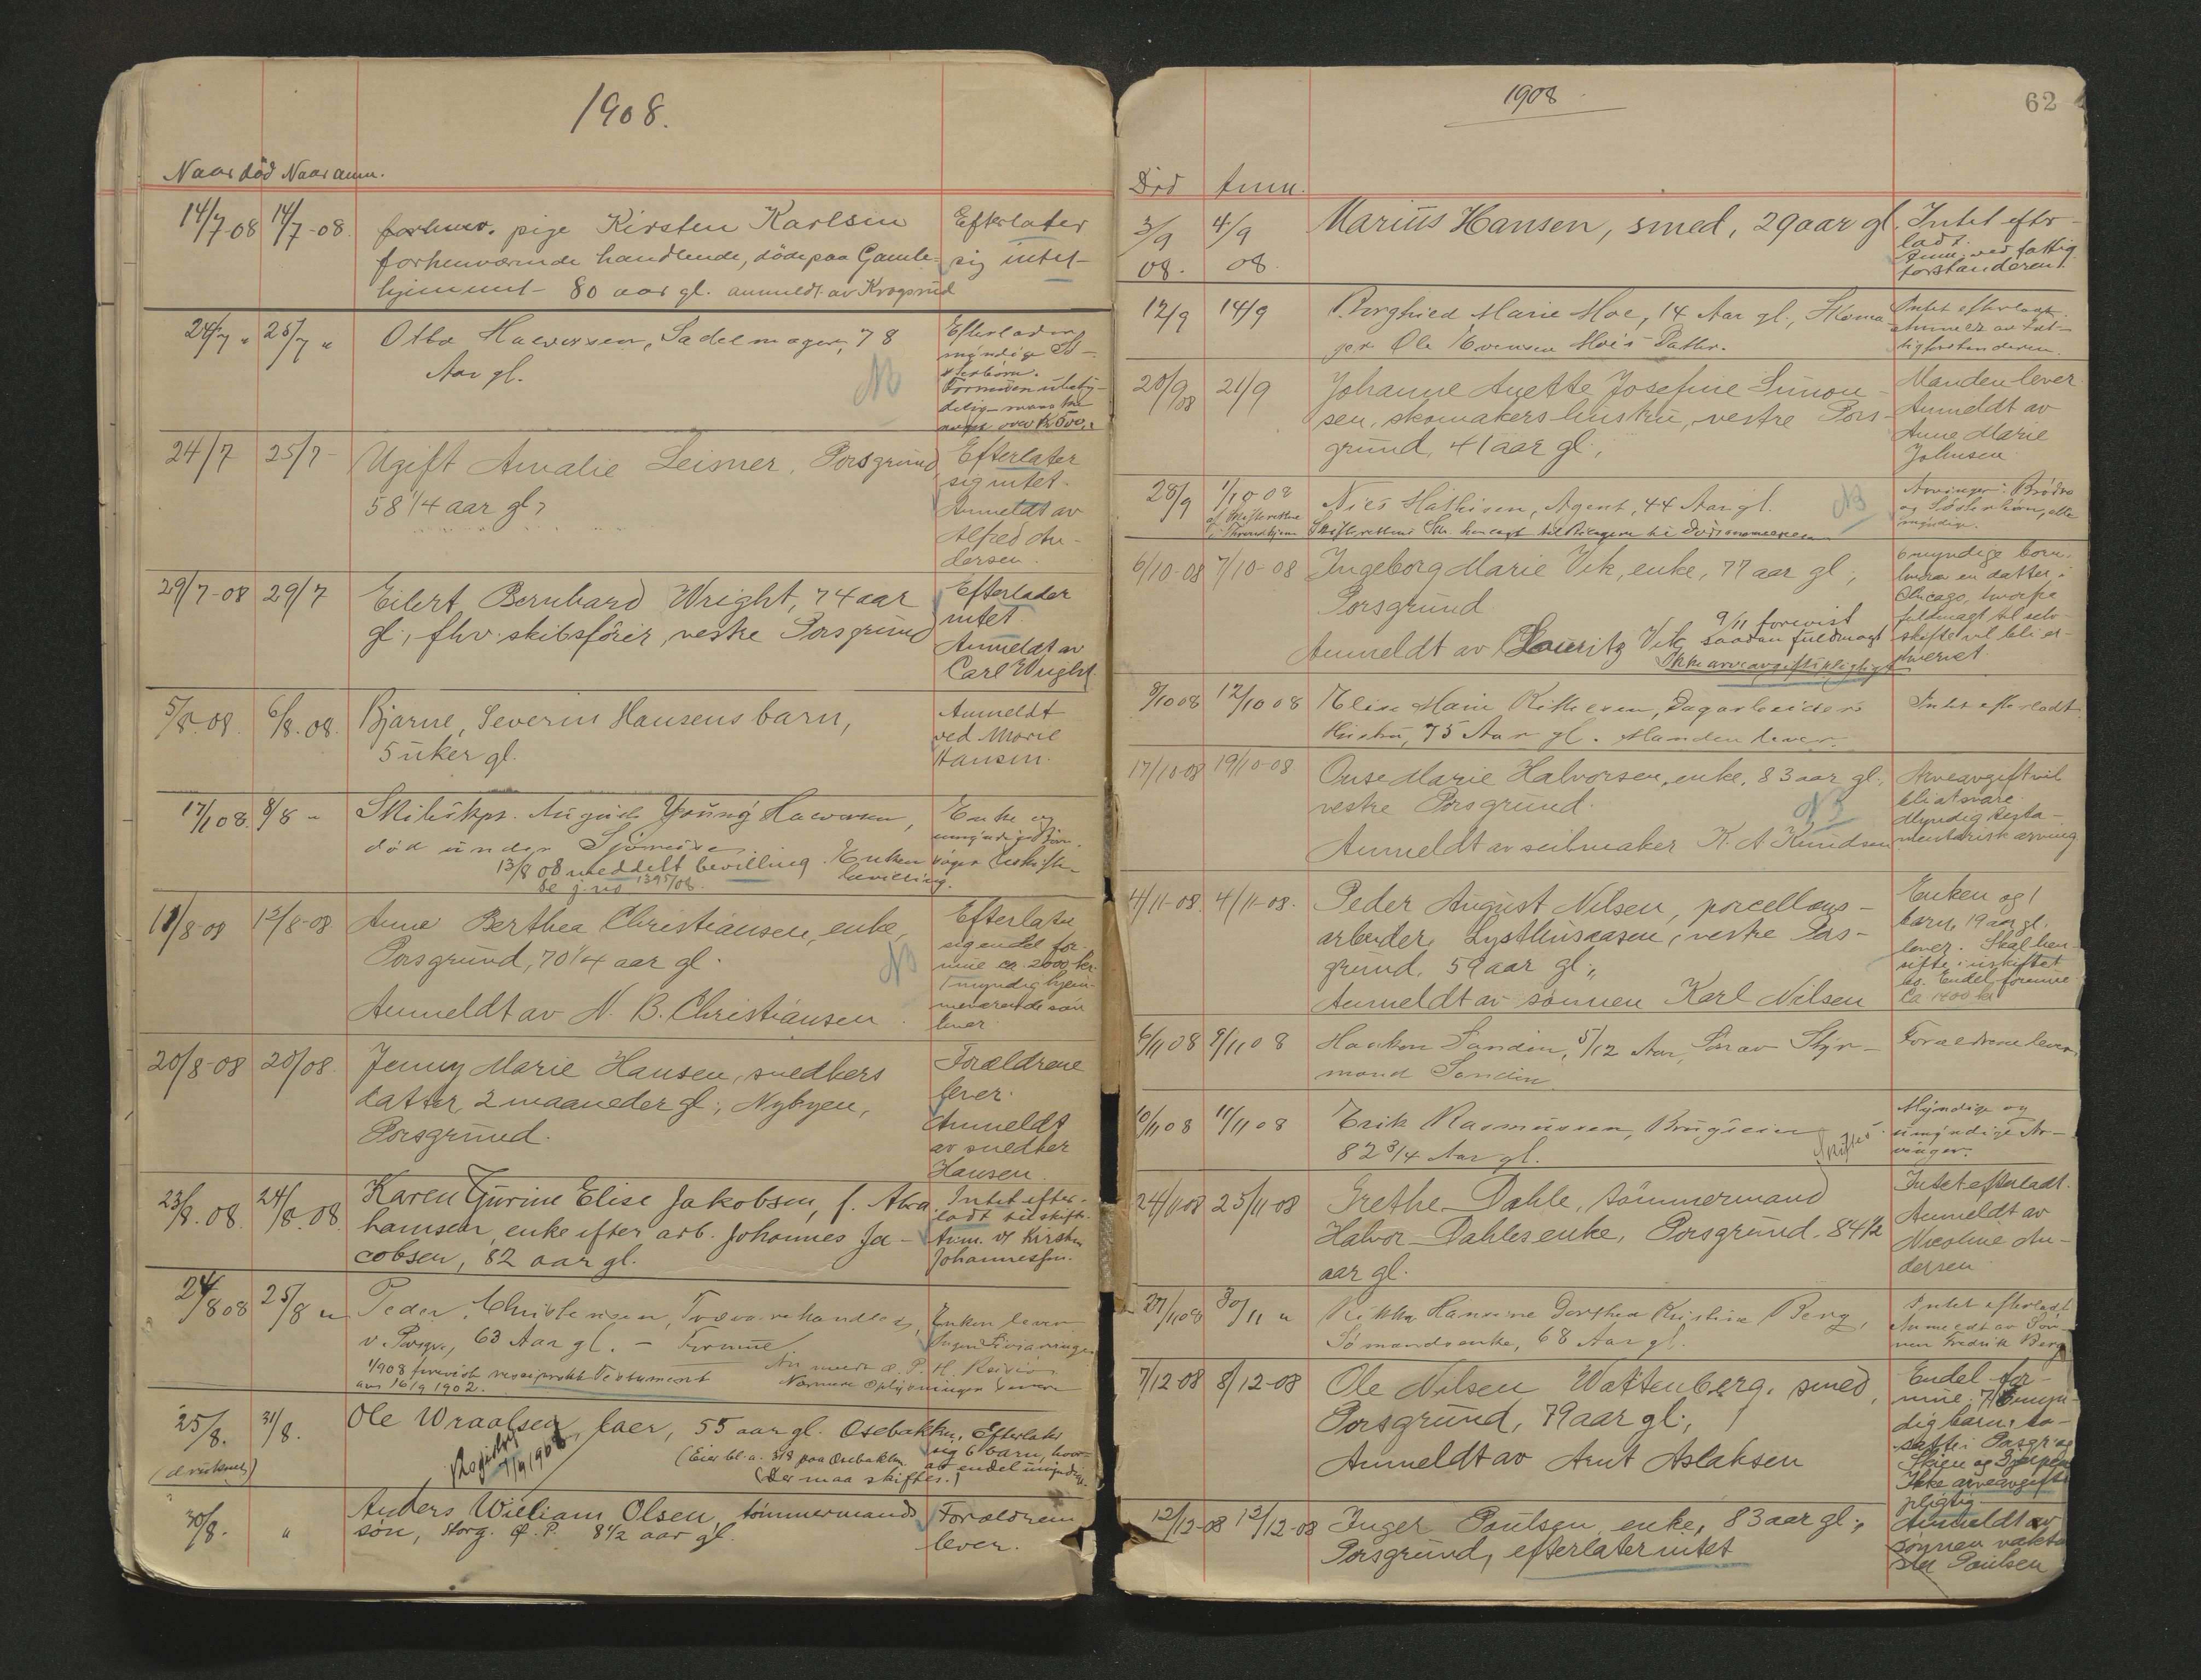 1908.
Naar död Naar anm.
14/7-08 14/7-08. forhenv. pige Kirsten Karlsen Efterlater
forhenværende handlende, döde paa Gamle- sig intet
hjemmet 80 aar gl. anmeldt av Krogsrud
24/7 " 25/7 " Otto Halvorsen, Sadelmager, 78 Efterlader
Aar gl. myndige
NB Formuen ubety-
delig
over Kr 500,
24/7 25/7- Ugift Amalie Leisner, Porsgrund Efterlater
58 1/4 aar gl. sig intet.
Anmeldt av
Alfred An-
dersen.
29/7-08 29/7 Eilert Bernhard Wright, 74 aar Efterlader
gl., fhv. skibsförer, vestre Porsgrund intet.
Anmeldt av
Carl Wright
5/8.08. 6/8.08. Bjarne, Severin Hansens barn, Anmeldt
5 uker gl. ved Marie
Hansen.
17/1 08. 8/8 " Skibskpt. August Young Halvorsen, Enke og
död under umyndige Börn.
13/8 08 meddelt bevilling Enken söger
1395/08. bevilling.
11/8-08 12/8-08 Anne Berthea Christiansen, enke, Efterlater
Porsgrund, 70 1/4 aar gl. sig endel for-
NB mue ca. 2000 kr.
1 myndig hjem-
Anmeldt av N. B. Christiansen. meværende sön
lever.
20/8-08 20/08. Jenny Marie Hansen, snedkers Forældrene
datter, 2 maaneder gl., Nybyen, lever.
Porsgrund. Anmeldt
av snedker
Hansen.
23/8.08. 24/8.08. Karen Gurine Elise Jakobsen, f. Abra- Intet efter-
hamsen, enke efter arb. Johannes Ja- ladt til skifte.
cobsen, 82 aar gl. Anm. v/ Kirsten
Johannessen.
24/8 08 25/8 " Peder Christensen, Trævarehandler, Enken lever
v. Porsgr., 63 Aar gl. - Formue Ingen Livsarvinger
1/9 08 forevist resiprokt Testament
av 16/9 1902. Nærmere Oplysninger senere
25/8. 31/8. Ole Wraalsen, laer, 55 aar gl. Osebakken, Efterlater
(druknet) (Eier bl. a. paa Osebakken. sig 6 barn, hvor-
1/9 1908 av endel umyndige.
(Der maa skiftes.)
30/8. " Anders William Olsen, tömmermands Forældrene
sön, Storg. Ø. P. 8 1/2 aar gl. lever.
1908
62
Död Anm.
3/9 4/9 Marius Hansen, smed, 29 aar gl. Intet efter-
08. 08. ladt.
Anm. ved fattig-
forstanderen.
12/9 14/9 Borghild Marie Moe, 14 Aar gl., Skoma- Intet efterladt.
ger Ole Evensen Moe's Datter. Anmeldt av Fat-
tigforstanderen.
20/9 08 21/9 Johanne Anette Josefine Simon- Manden lever.
sen, skomakers hustru, vestre Pors- Anmeldt av
grund, 41 aar gl., Anne Marie
Johnsen.
28/9 1/10-08 Nils Mathisen, Agent, 44 Aar gl. NB Arvinger: Brödre
af Skifteretten og Söskenbörn, alle
i Throndhjem myndige.
6/10-08 7/10-08 Ingeborg Marie Vik, enke, 77 aar gl., 6 myndige barn,
Porsgrund. hvorav en datter i
9/11 forevist Chicago, hvorfra
Anmeldt av Lauritz Vik saadan fuldmagt fuldmagt til selv-
Ikke arveavgiftspligtigt skifte vil bli er-
hvervet.
9/10 08 12/10 08 Elise Marie Kittilsen, Dagarbeiders Intet efterladt.
Hustru, 75 Aar gl. Manden lever.
17/10-08 19/10-08 Anse Marie Halvorsen, enke, 83 aar gl., Arveavgift vil
vestre Porsgrund. bli at svare.
NB Myndig testa-
Anmeldt av seilmaker K. A. Knudsen mentarisk arving
4/11-08. 4/11-08. Peder August Nilsen, porcellæns- Enken og 1
arbeider, Lysthusaasen, vestre Pors- barn, 19 aar gl.,
grund, 59 aar gl., lever. Skal hen-
Anmeldt av sönnen Karl Nilsen sitte i uskiftet
bo. Endel formue
Ca 1400 kr
6/11 08 9/11 08 Haakon Sandin, 5/12 Aar, Sön av Styr- Forældrene lever.
mand Sandin.
10/11 08 11/11 08 Erik Rasmussen, Brugseier Myndige og
82 3/4 Aar gl. umyndige Ar-
vinger.
24/11 08 25/11-08 Grethe Dahle, tömmermand Intet efterladt.
Halvor Dahles enke, Porsgrund. 84 1/2 Anmeldt av
aar gl. Nicoline An-
dersen
27/11 08 30/11 " Rikka Hansine Dorthea Kristine Berg, Intet efterladt
Sömandsenke, 68 Aar gl. Anmeldt av Sön-
nen Fredrik Berg
7/12-08 8/12-08 Ole Nilsen Wattenberg, smed, Endel for-
Porsgrund, 79 aar gl., mue, 7 myn-
Anmeldt av Arnt Aslaksen dig barn, bo-
satte i Porsgr. og
Skien og Gjerpen
Ikke arveavgifts-
pligtig
12/12-08 12/12-08 Inger Poulsen, enke, 83 aar gl., Anmeldt av
Porsgrund, efterlater intet sönnen
Poulsen